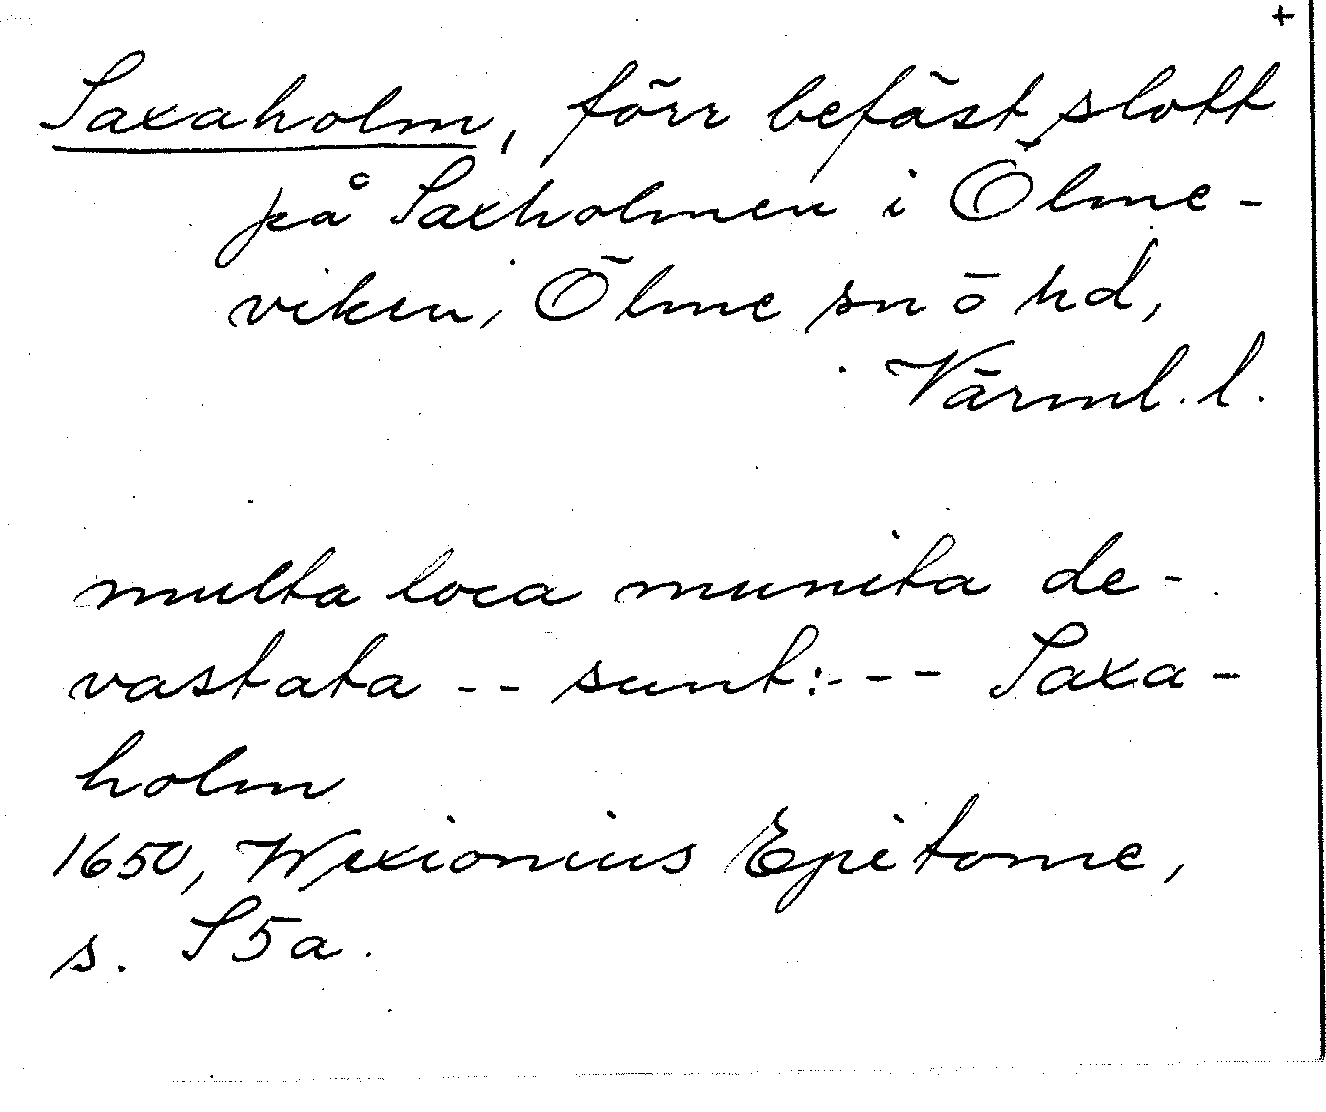 +
Saxaholm, förr befäst slott
på Saxholmen i Ölme-
viken, Ölme sn o hd,
Värml. l.
multa loca munita de-
vastata -- sunt: --- Saxa-
holm
1650, Wexionius Epitome,
s. S5a.